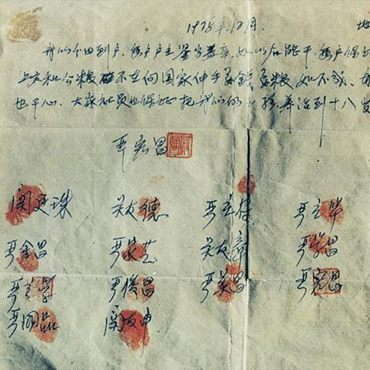 1978年12月 地
我们分田到户,每户户主签字盖章,如以后能干,每户保
上交和公粮 不在向国家伸手要钱要粮 如不成,我
也干心,大家社员也保证把我们的小孩养活到十八岁
严宏昌
关廷珠 关友德 严立符 严立华
严金昌 严家芝 关友章 严学昌
严立学 严俊昌 严美昌 严宏昌
严国品 关友申